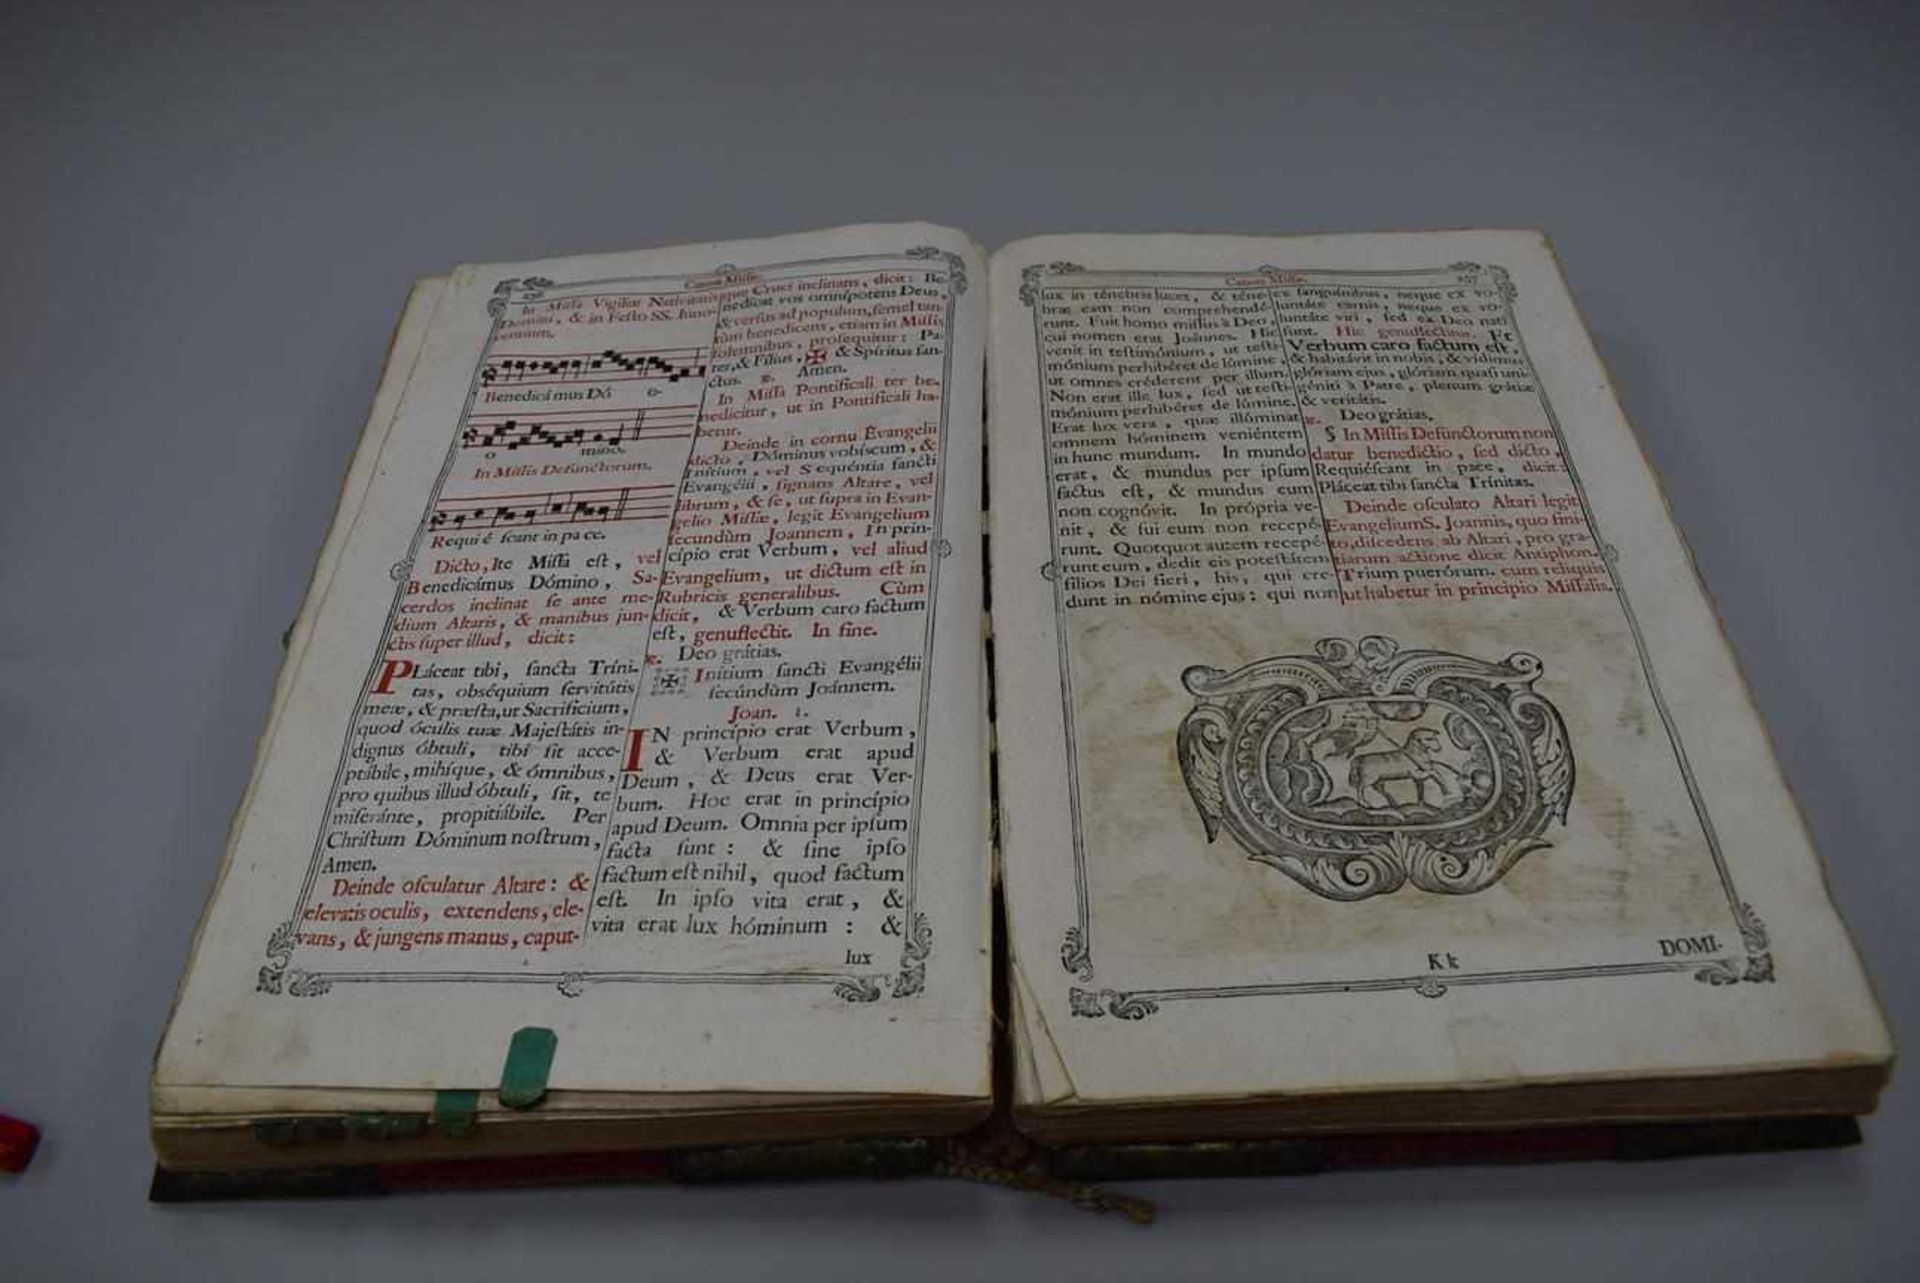 256
Canon Missæ.
In Missa Vigiliæ Nativitatis
Domini, & in Festo SS. Inno-
centium.
Benedicá mus Dó o-
o mino.
In Missis Defunctorum.
Requi é scant in pa ce.
Dicto, Ite Missa est, vel
Benedicámus Dómino, Sa-
cerdos inclinat se ante me-
dium Altaris, & manibus jun-
ctis super illud, dicit:
PLáceat tibi, sancta Tríni-
tas, obséquium servitútis
meæ, & præsta, ut Sacrificium,
quod óculis tuæ Majestátis in-
dignus óbtuli, tibi sit acce-
ptábile, mihíque, & ómnibus,
pro quibus illud óbtuli, sit, te
miseránte, propitiábile. Per
Christum Dóminum nostrum,
Amen.
Deinde osculatur Altare: &
elevatis oculis, extendens, ele-
vans, & jungens manus, caput-
que Cruci inclinans, dicit: Be-
nedicat vos omnípotens Deus,
& versus ad populum, semel tan-
tùm benedicens, etiam in Missis
solemnibus, prosequitur: Pa-
ter, & Fílius, ✠ & Spíritus san-
ctus. ℟. Amen.
In Missa Pontificali ter be-
nedicitur, ut in Pontificali ha-
betur.
Deinde in cornu Evangelii
dicto, Dóminus vobíscum, &
Inítium, vel Sequéntia sancti
Evangélii, signans Altare, vel
librum, & se, ut supra in Evan-
gelio Missæ, legit Evangelium
secundùm Joannem, In prin-
cípio erat Verbum, vel aliud
Evangelium, ut dictum est in
Rubricis generalibus. Cùm
dicit, & Verbum caro factum
est, genuflectit. In fine.
℟. Deo grátias.
✠ Inítium sancti Evangélii
secúndùm Joánnem.
Joan. 1.
IN princípio erat Verbum,
& Verbum erat apud
Deum, & Deus erat Ver-
bum. Hoc erat in princípio
apud Deum. Omnia per ipsum
facta sunt: & sine ipso
factum est nihil, quod factum
est. In ipso vita erat, &
vita erat lux hóminum: &
lux
Canon Missæ.
257
lux in ténebris lucet, & téne-
bræ eam non comprehendé-
runt. Fuit homo missus à Deo,
cui nomen erat Joánnes. Hic
venit in testimónium, ut testi-
mónium perhibéret de lúmine,
ut omnes créderent per illum.
Non erat ille lux, sed ut testi-
mónium perhibéret de lúmine.
Erat lux vera, quæ illúminat
omnem hóminem veniéntem
in hunc mundum. In mundo
erat, & mundus per ipsum
factus est, & mundus eum
non cognóvit. In própria ve-
nit, & sui eum non recepé-
runt. Quotquot autem recepé-
runt eum, dedit eis potestátem
fílios Dei fíeri, his, qui cre-
dunt in nómine ejus: qui non
ex sanguínibus, neque ex vo-
luntáte carnis, neque ex vo-
luntáte viri, sed ex Deo nati
sunt. Hic genuflectitur. Et
Verbum caro factum est,
& habitávit in nobis; & vídimus
glóriam ejus, glóriam quasi uni-
géniti à Patre, plenum grátiæ
& veritátis.
℟. Deo grátias.
§ In Missis Defunctorum non
datur benedictio, sed dicto,
Requiéscant in pace, dicit:
Pláceat tibi sancta Trínitas.
Deinde osculato Altari legit
Evangelium S. Joannis, quo fini-
to, discedens ab Altari, pro gra-
tiarum actione dicit Antiphon.
Trium puerórum. cum reliquis
ut habetur in principio Missalis.
Kk
DOMI-